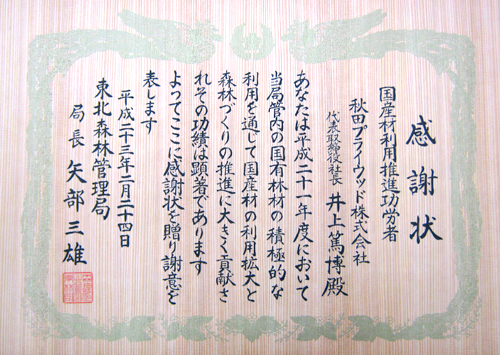 感謝状
国産材利用推進功労者
秋田プライウッド株式会社
代表取締役社長 井上篤博殿
あなたは平成二十一年度において
当局管内の国有林材の積極的な
利用を通じて国産材の利用拡大と
森林づくりの推進に大きく貢献さ
れその功績は顕著であります
よってここに感謝状を贈り謝意を
表します
平成二十三年二月二十四日
東北森林管理局
局長 矢部三雄